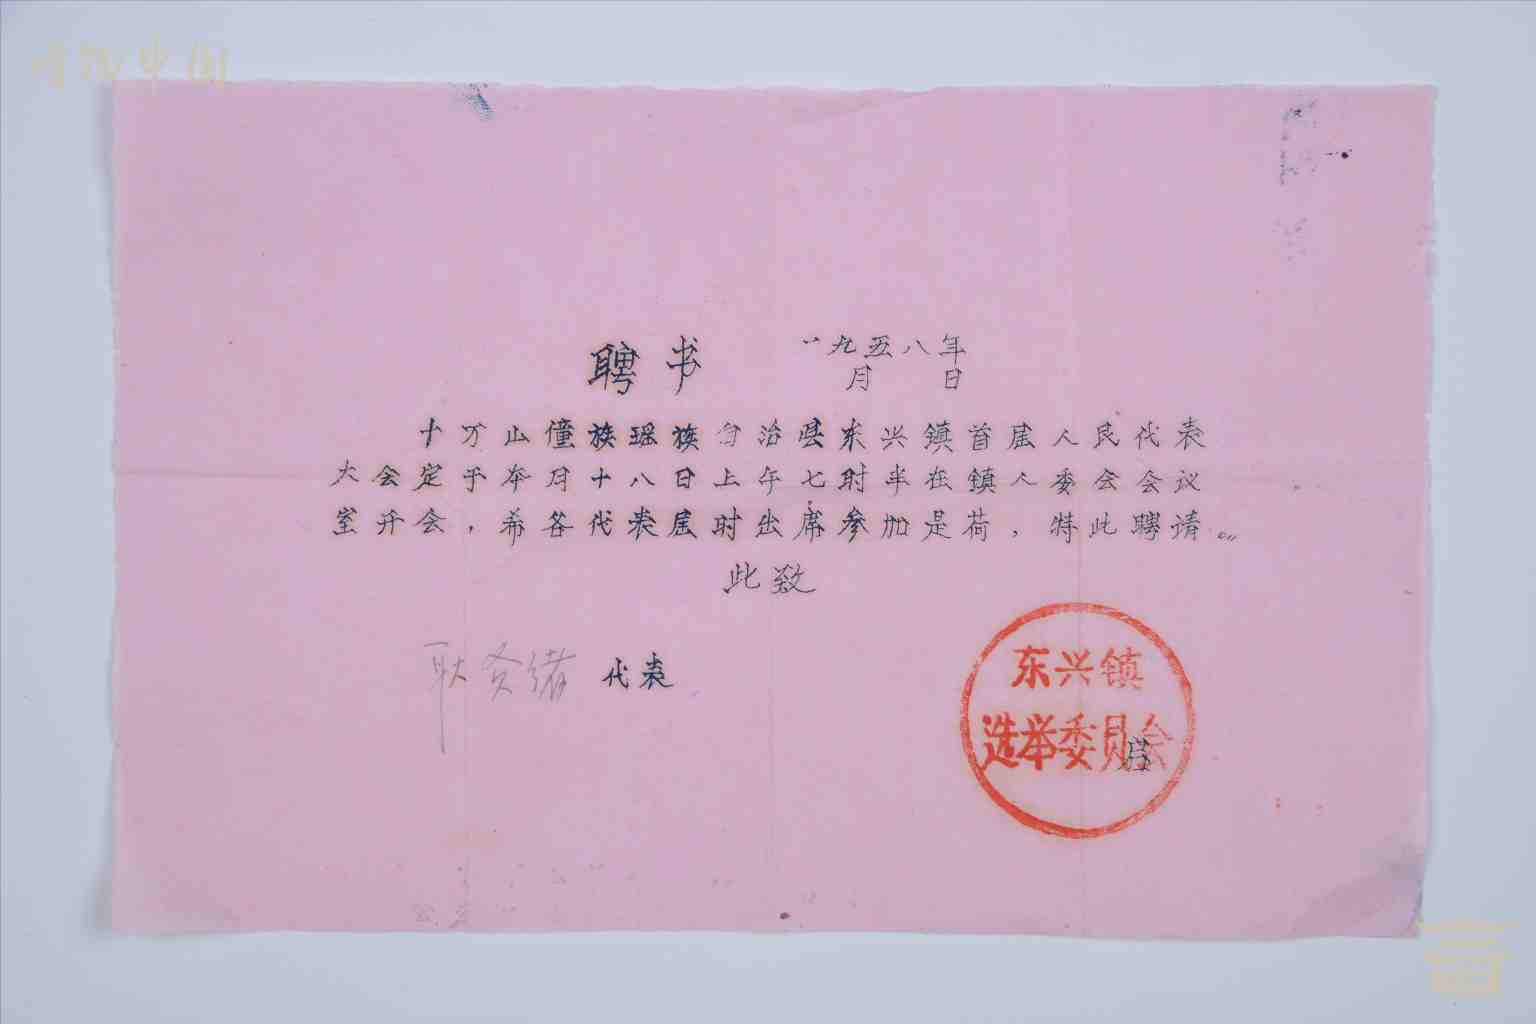 聘书
一九五八年
月 日
十万山僮族瑶族自治县东兴镇首届人民代表
大会定于本月十八日上午七时半在镇人委会会议
室开会，希各代表届时出席参加是荷，特此聘请。
此致
代表
东兴镇
选举委员会
启